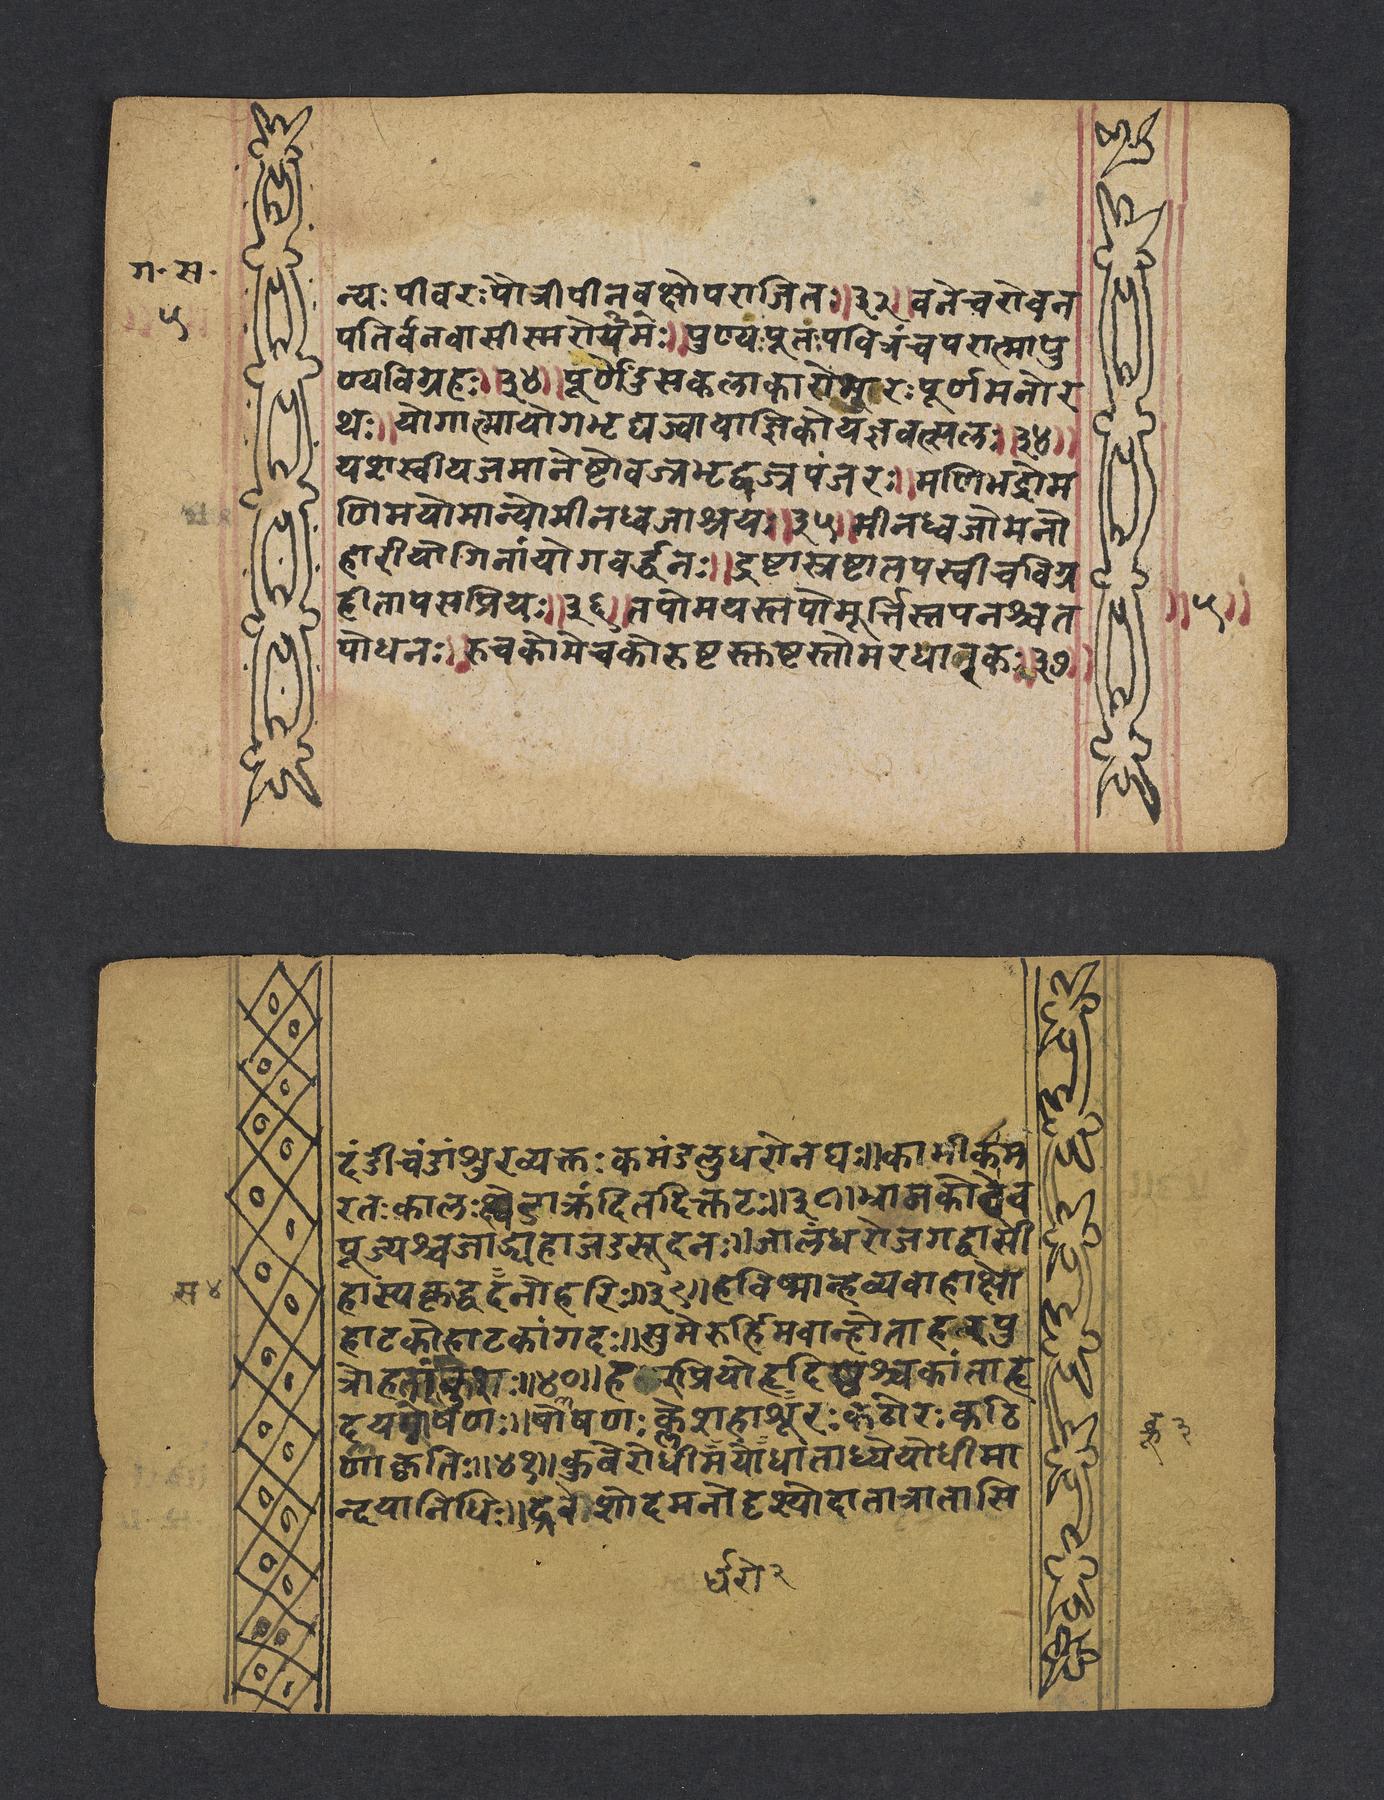 ग॰ स॰
५
न्यः पीवरः पौत्रीपीनवक्षोपराजितः॥३२॥वनेचरोवन
पतिर्वनवासीस्मरोयमः॥पुण्यः पूतः पवित्रंच परात्मापु
ण्यविग्रहः॥३४॥पूर्णेंदुसकलाकारोभारः पूर्णमनोर
थः॥योगात्मायोगभृद्यज्वायाज्ञिकोयज्ञवत्सलः॥३४॥
यशस्वीयजमानेष्टोवज्रभृद्वज्रपंजरः॥मणिभद्रोम
णिमयोमान्योमीनध्वजाश्रयः॥३५॥मीनध्वजोमनो
हारीयोगिनांयोगवर्द्धनः॥द्रष्टास्रष्टातपस्वीचविग्र
हीतापसप्रियः॥३६॥तपोमयस्तपोमूर्त्तिस्तपनश्चत
पोधनः॥रुचकोमेचकोरुष्टस्तष्टस्तोमरधानुकः॥३७॥
॥५॥
दंडीचंडांशुरव्यक्तः कमंडलुधरोनघः॥कामीकर्म
रतः कालः क्रंदितदिक्तटः॥३८॥भ्रामको
पूज्यश्चजाड्यहाजडसूदनः॥जालंधरोजगद्वासी
हास्यकृद्धदनोहरिः॥३९॥हविष्मान्हव्यवाहाक्षो
हाटकोहाटकांगदः॥सुमेरुर्हिमवान्होताहरपु
त्रोहलांकुशः॥४०॥ह प्रियोहृदि श्चकांताहृ
दयपोषणः॥पोषणः क्लेशहाशूरः कठोरः कठि
णाकृतिः॥४१॥कुबेरोधीमयोधाताध्येयोधीमा
न्दयानिधिः॥द दमनोदृश्योदातात्रातासि
स ४
र्धरो २